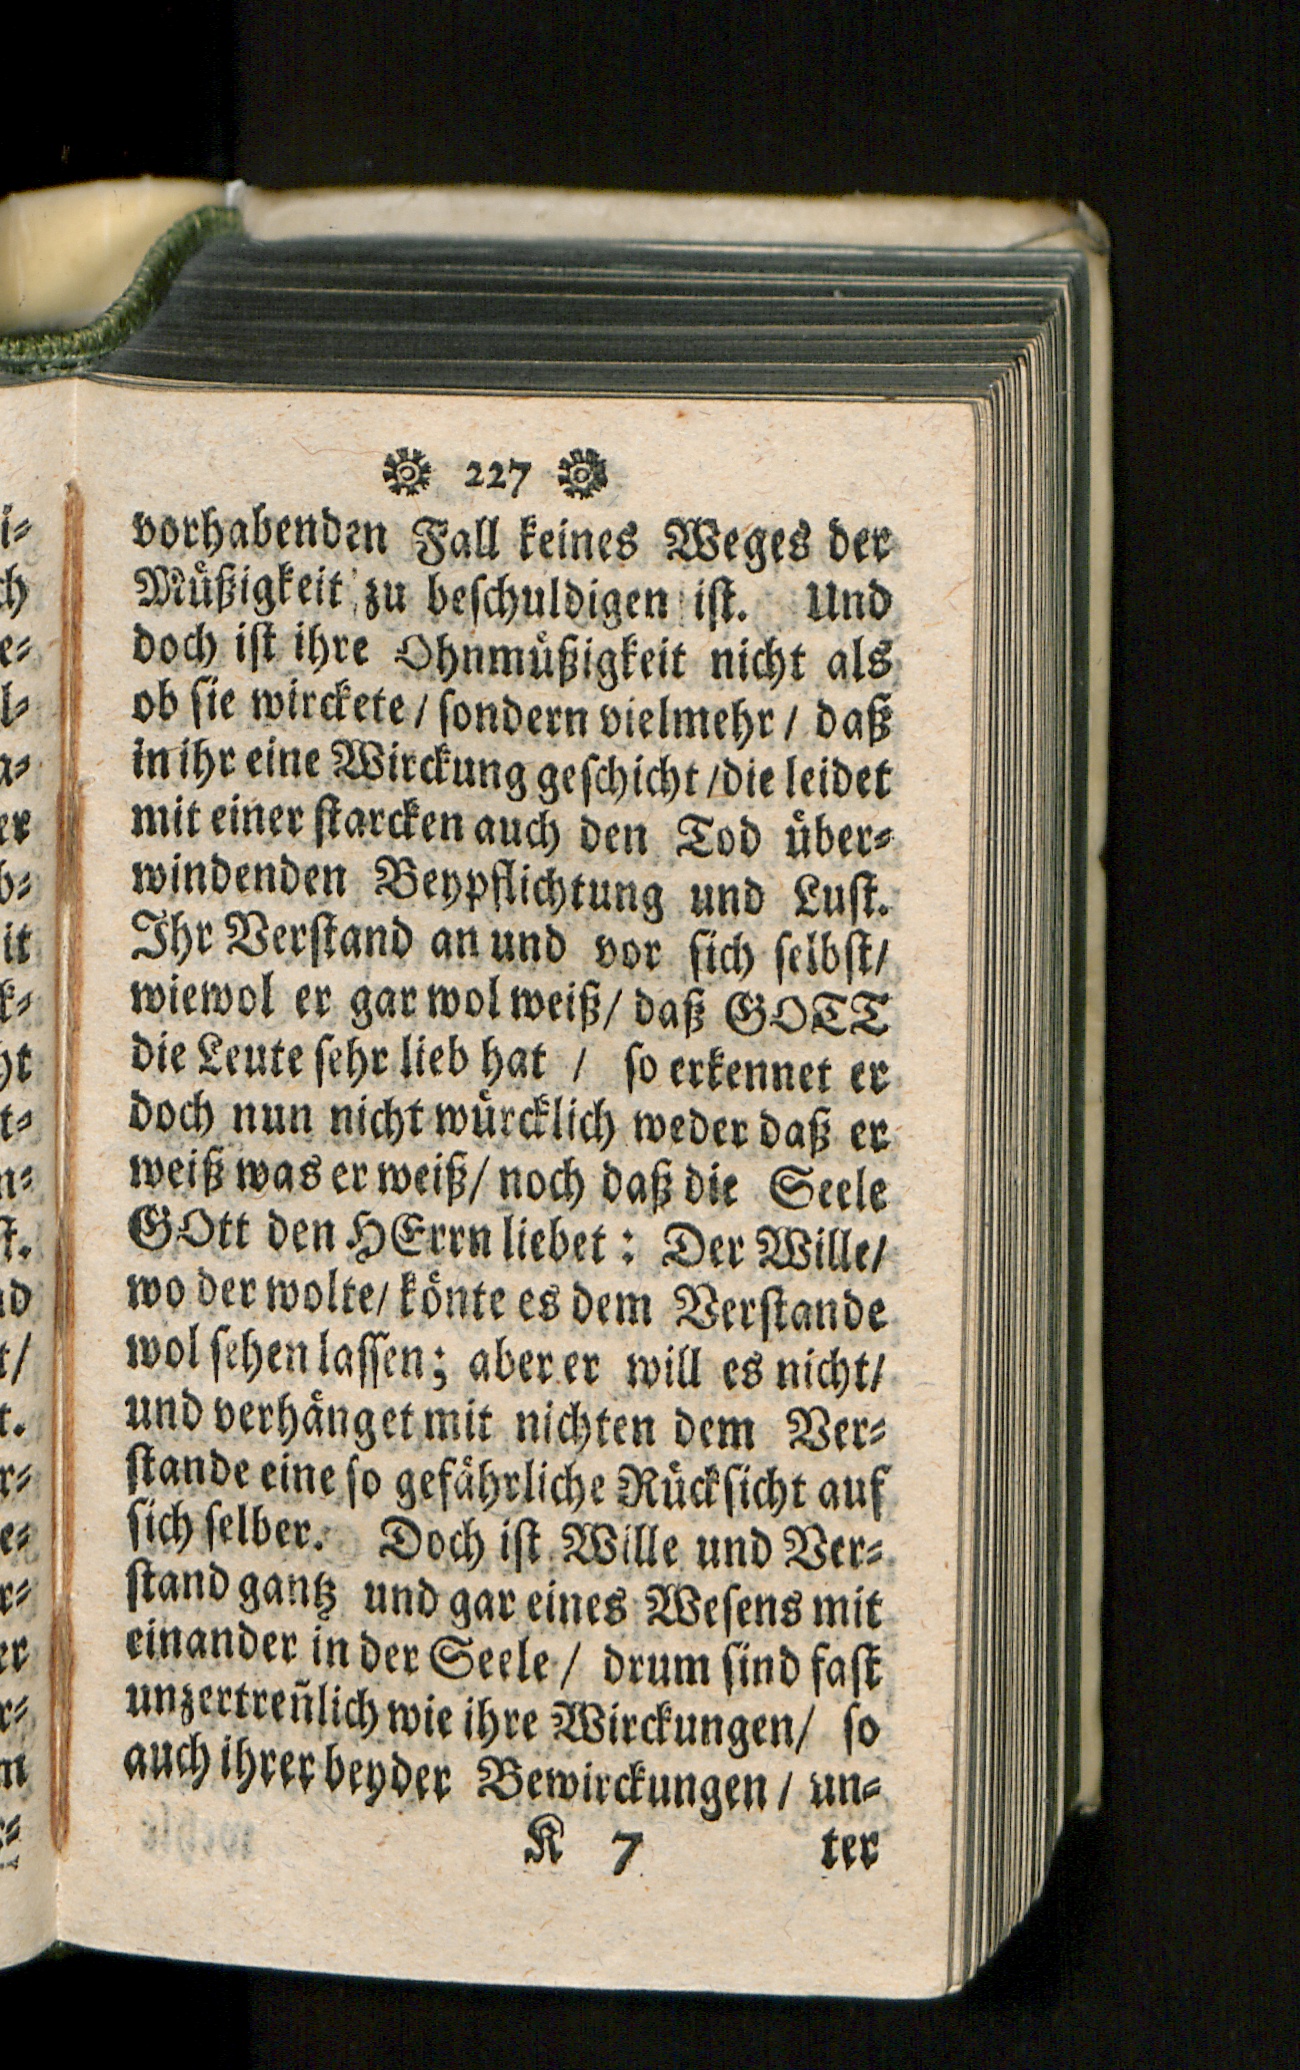 227
vorhabenden Fall keines Weges der
Muͤßigkeit zu beſchuldigen iſt. Und
doch iſt ihre Ohnmuͤßigkeit nicht als
ob ſie wirckete / ſondern vielmehr / daß
in ihr eine Wirckung geſchicht / die leidet
mit einer ſtarcken auch den Tod uͤber⸗
windenden Beypflichtung und Luſt.
Ihr Verſtand an und vor ſich ſelbſt/
wiewol er gar wol weiß/ daß GOTT
die Leute ſehr lieb hat / ſo erkennet er
doch nun nicht wuͤrcklich weder daß er
weiß was er weiß/ noch daß die Seele
GOtt den HErrn liebet: Der Wille/
wo der wolte/ koͤnte es dem Verſtande
wol ſehen laſſen; aber er will es nicht/
und verhaͤnget mit nichten dem Ver⸗
ſtande eine ſo gefaͤhrliche Ruͤckſicht auf
ſich ſelber. Doch iſt Wille und Ver⸗
ſtand gantz und gar eines Weſens mit
einander in der Seele / drum ſind faſt
unzertreñlich wie ihre Wirckungen/ ſo
auch ihrer beyder Bewirckungen / un⸗
K 7 ter